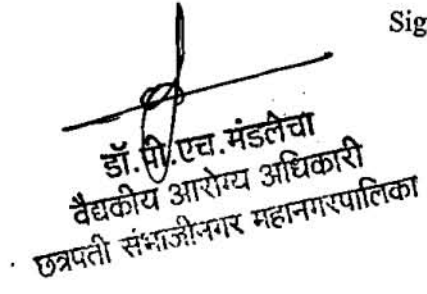 Sig
डॉ.पी.एच.मंडलेचा
वैद्यकीय आरोग्य अधिकारी
छत्रपती संभाजीनगर महानगरपालिका